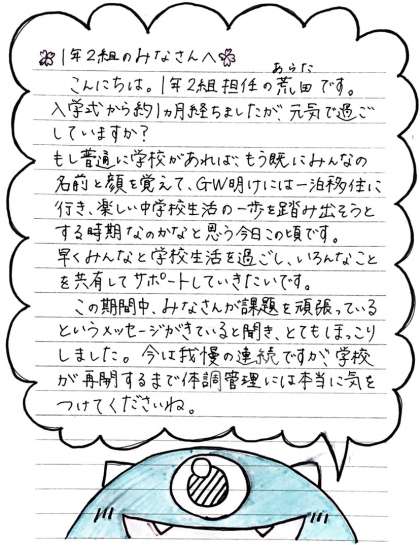 1年2組のみなさんへ
あらた
こんにちは。1年2組担任の荒田です。
入学式から約1ヵ月経ちましたが、元気で過ご
していますか?
もし普通に学校があれば、もう既にみんなの
名前と顔を覚えて、GW明けには一泊移住に
行き、楽しい中学校生活の一歩を踏み出そうと
する時期なのかなと思う今日この頃です。
早くみんなと学校生活を過ごし、いろんなこと
を共有してサポートしていきたいです。
この期間中、みなさんが課題を頑張っている
というメッセージがきていると聞き、とてもほっこり
しました。今は我慢の連続ですが、学校
が再開するまで体調管理には本当に気を
つけてくださいね。